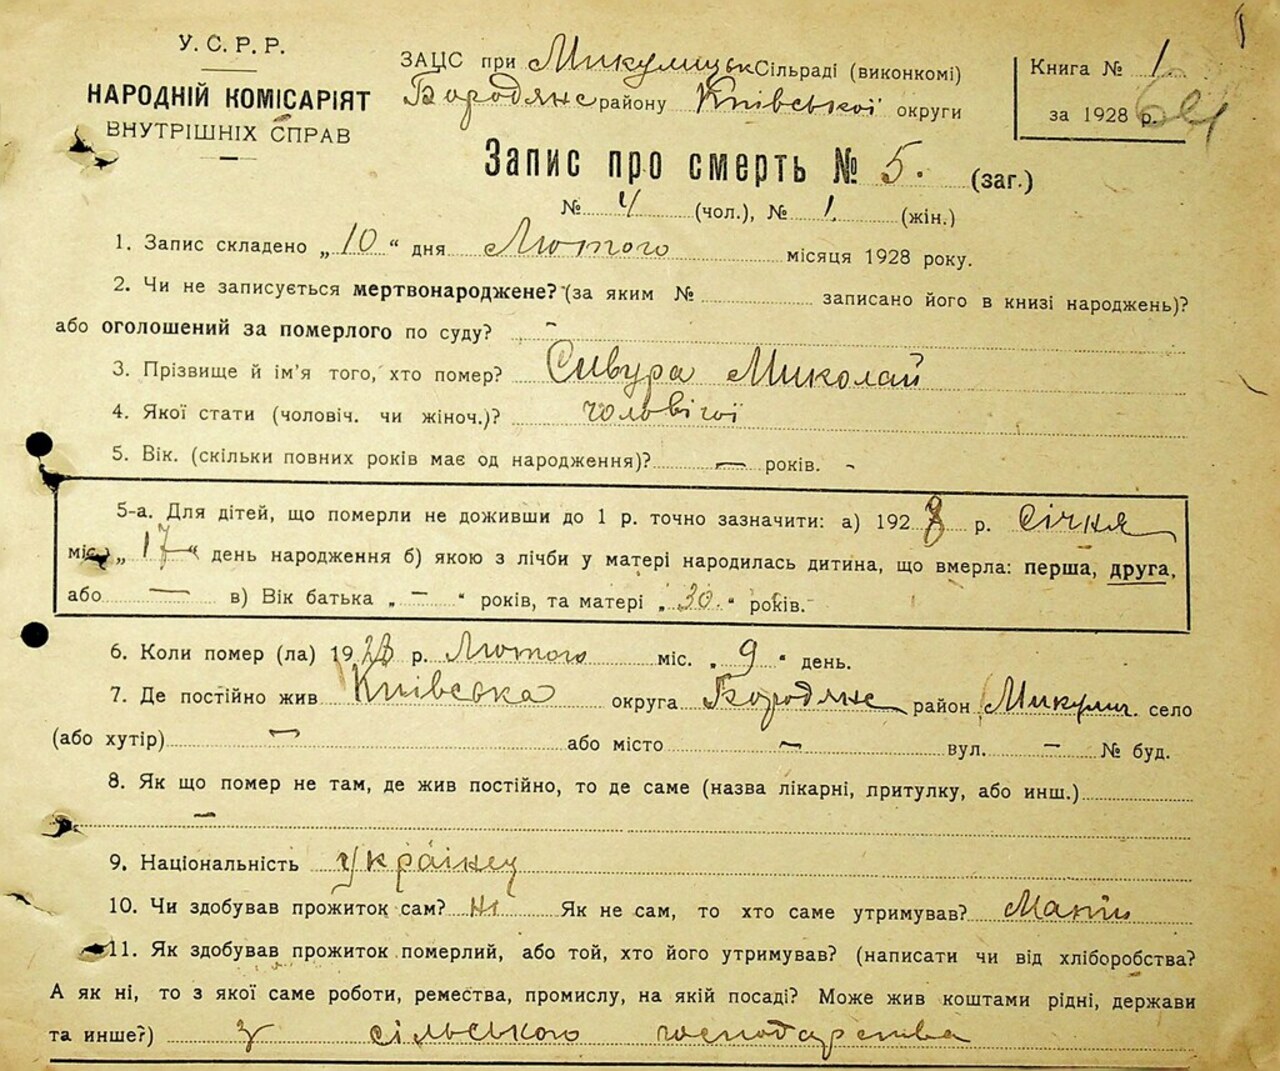 У.С.Р.Р.
НАРОДНІЙ КОМІСАРІЯТ
ВНУТРІШНІХ СПРАВ
ЗАЦС при Микулицьк Сільраді (виконкомі)
Бородянс району Київської округи
Книга № 1
за 1928 р.
Запис про смерть № 5. (заг.)
№ 4 (чол.), № 1. (жін.)
1. Запис складено „10“ дня Лютого місяця 1928 року.
2. Чи не записується мертвонароджене? (за яким № записано його в книзі народжень)?
або оголошений за померлого по суду? –
3. Прізвище й ім'я того, хто помер? Сивура Миколай
4. Якої стати (чоловіч. чи жіноч.)? чоловічої
5. Вік. (скільки повних років має од народження)? — років. -
5-а. Для дітей, що померли не доживши до 1 р. точно зазначити: а) 1928 р. Січня
міс. „17“ день народження б) якою з лічби у матері народилась дитина, що вмерла: перша, друга,
або — в) Вік батька „ – “ років, та матері „30.“ років.
6. Коли помер (ла) 1928 р. Лютого міс. „9“ день.
7. Де постійно жив Київська округа Бородянс район Микулич. село
(або хутір) — або місто — вул. — № буд.
8. Як що помер не там, де жив постійно, то де саме (назва лікарні, притулку, або инш.)
—
9. Національність українец
10. Чи здобував прожиток сам? ні Як не сам, то хто саме утримував? Мати
11. Як здобував прожиток померлий, або той, хто його утримував? (написати чи від хліборобства?
А як ні, то з якої саме роботи, ремества, промислу, на якій посаді? Може жив коштами рідні, держави
та инше?) з сільського господарства